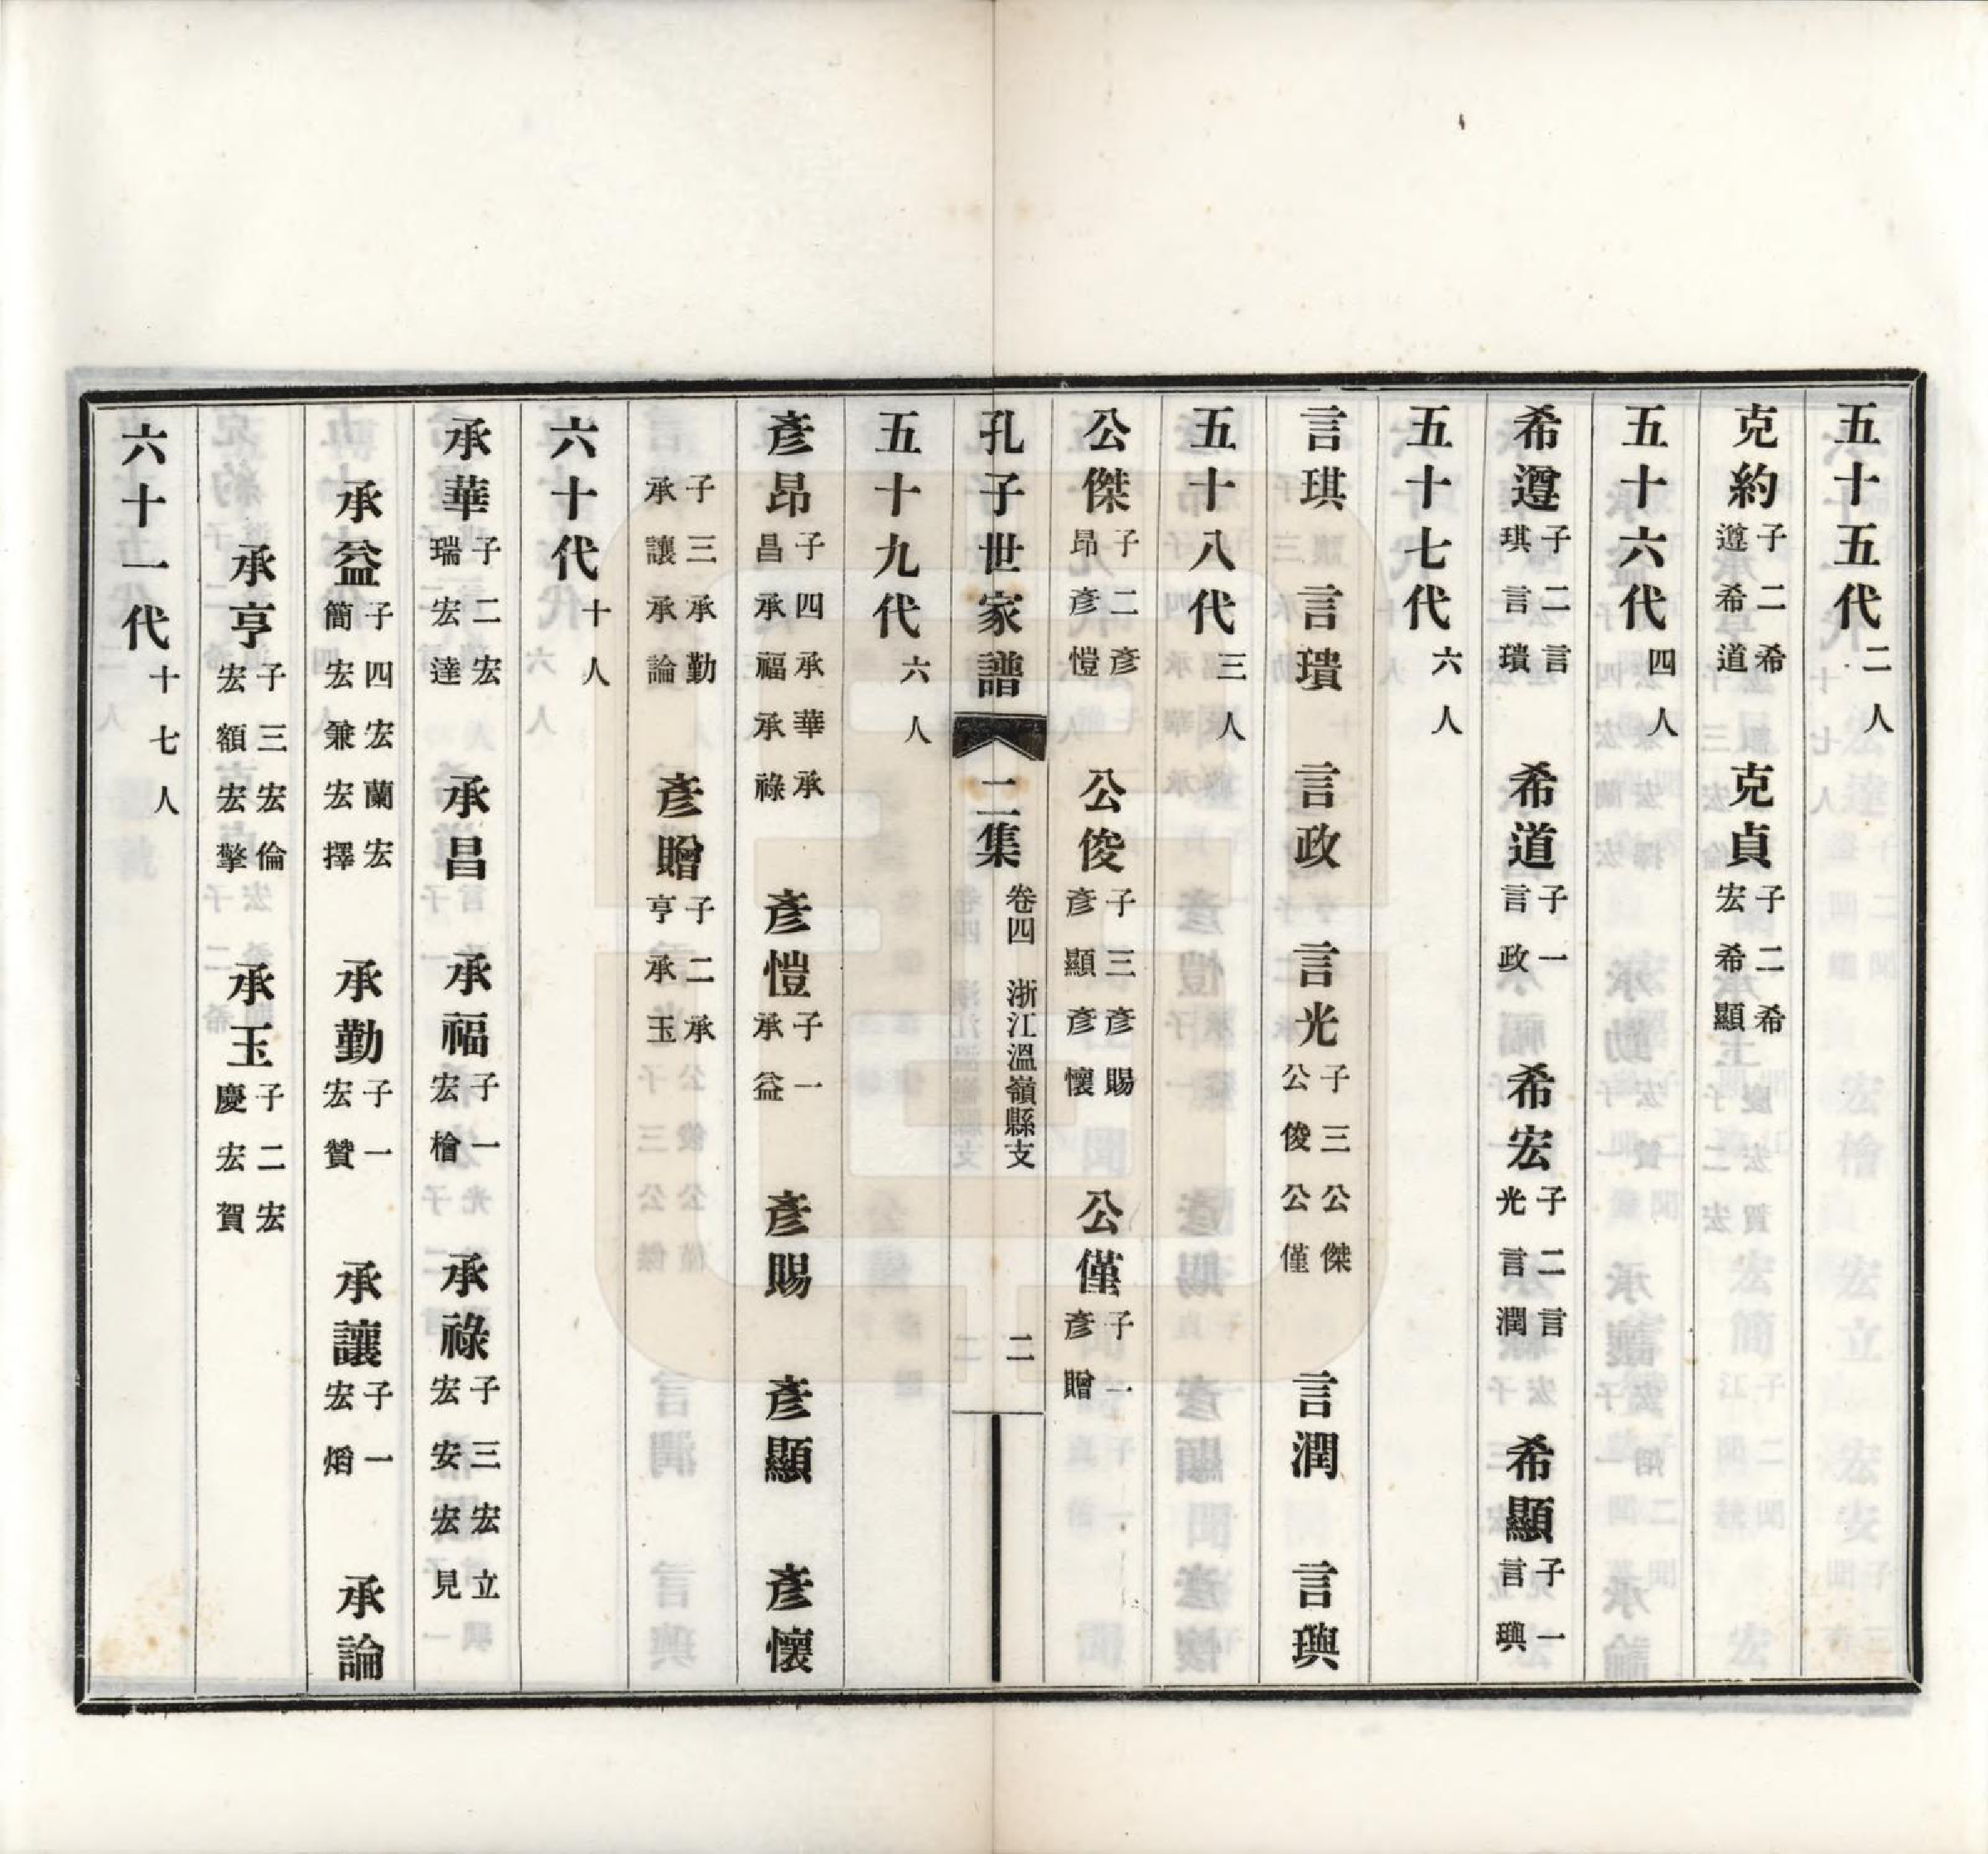 五十五代二人
克約子二希遵希道　克貞子二希宏希顯
五十六代四人
希遵子二言琪言璝　希道子一言政　希宏子二言光言潤　希顯子一言璵
五十七代六人
言琪　言璝　言政　言光子三公傑公俊公僅　言潤　言璵
五十八代三人
公傑子二彥昂彥愷　公俊子三彥賜彥顯彥懷　公僅子一彥贈
孔子世家譜　二集　卷四　浙江溫嶺縣支　二
五十九代六人
彥昂子四承昌承華承福承祿　彥愷子一承益　彥賜　彥顯　彥懷
子三承勤承讓承論　彥贈子二承亨承玉
六十代十人
承華子二宏瑞宏達　承昌　承福子一宏檜　承祿子三宏立宏安宏見
承益子四宏蘭宏簡宏兼宏擇　承勤子一宏贊　承讓子一宏熖　承論
承亨子三宏倫宏額宏擎　承玉子二宏慶宏賀
六十一代十七人